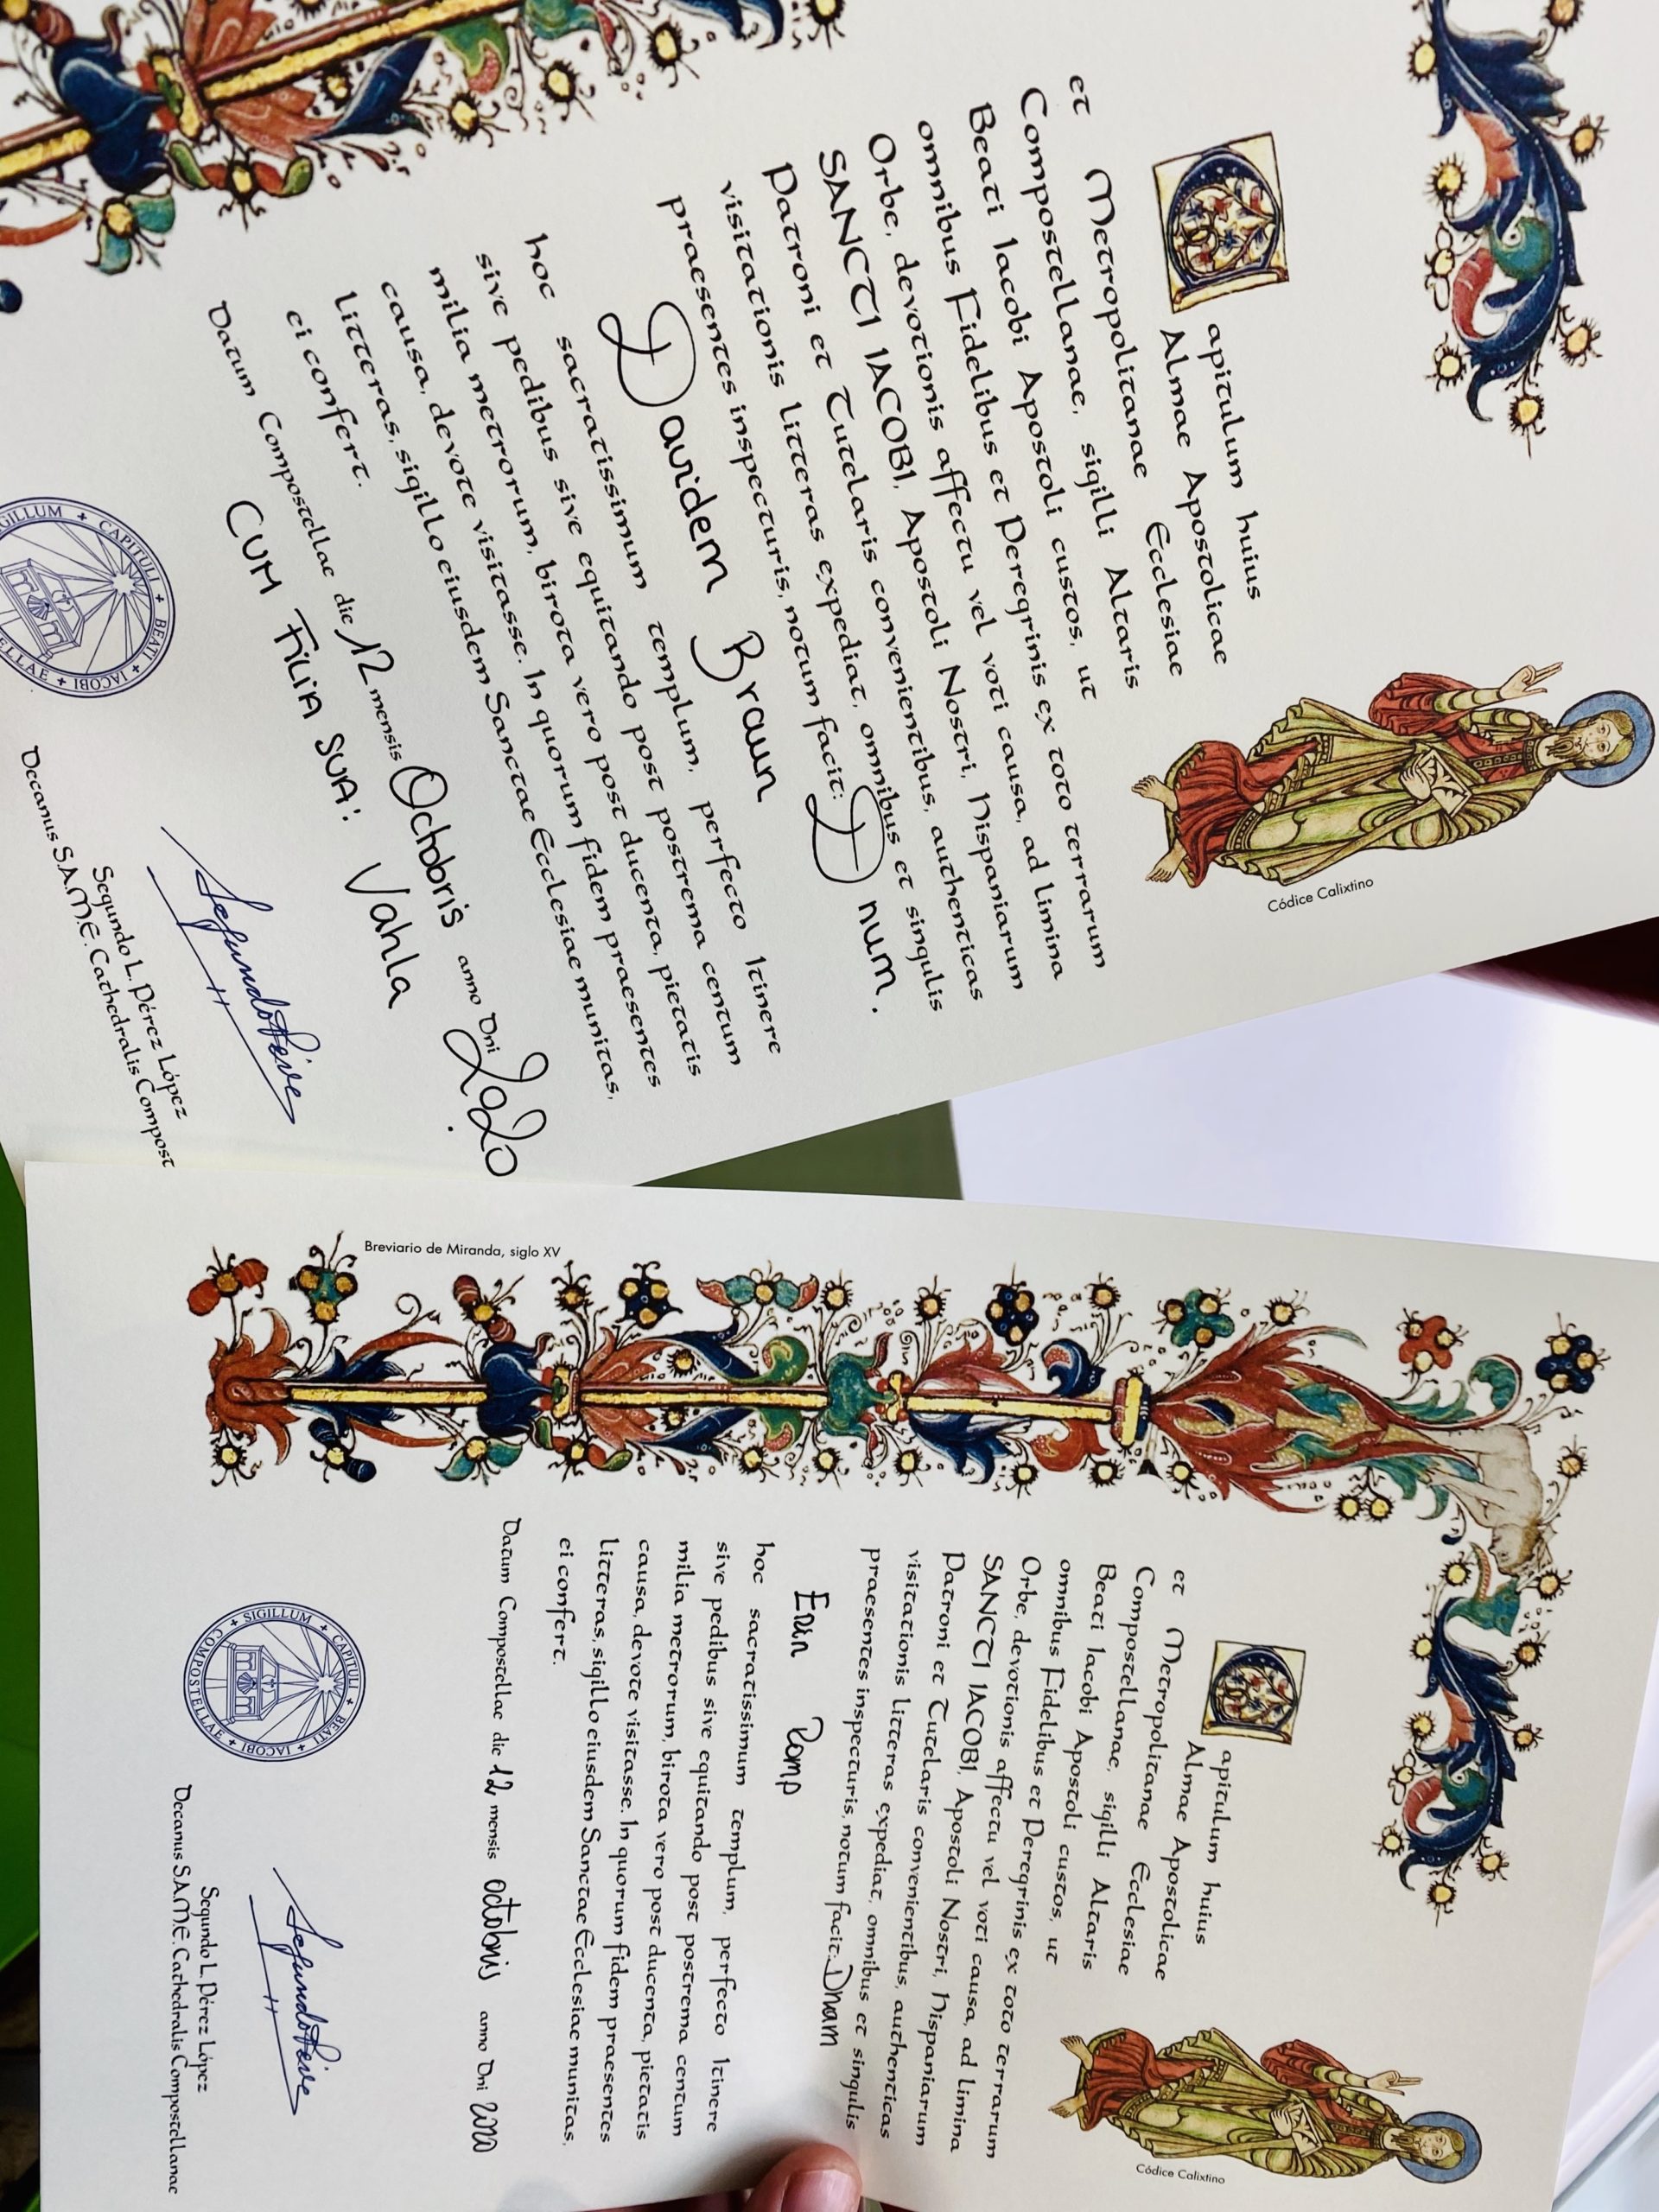 apitulum huius
Almae Apostolicae
et Metropolitanae Ecclesiae
Compostellanae, sigilli Altaris
Beati Iacobi Apostoli custos, ut
omnibus Fidelibus et Peregrinis ex toto terrarum
Orbe, devotionis affectu vel voti causa, ad limina
SANCTI IACOBI, Apostoli Nostri, Hispaniarum
Patroni et Tutelaris convenientibus, authenticas
visitationis litteras expediat, omnibus et singulis
praesentes inspecturis, notum facit: Dnum.
Davidem Braun
hoc sacratissimum templum, perfecto Itinere
sive pedibus sive equitando post postrema centum
milia metrorum, birota vero post ducenta, pietatis
causa, devote visitasse. In quorum fidem praesentes
litteras, sigillo eiusdem Sanctae Ecclesiae munitas,
ei confert.
Datum Compostellae die 12 mensis Octobris anno Dni 2020
CUM FILIA SUA: Vahla
SIGILLUM + CAPITULI + BEATI + IACOBI +
Segundo L. Pérez López
Decanus S.A.M.E. Cathedralis Compost
Códice Calixtino
Breviario de Miranda, siglo XV
apitulum huius
Almae Apostolicae
et Metropolitanae Ecclesiae
Compostellanae, sigilli Altaris
Beati Iacobi Apostoli custos, ut
omnibus Fidelibus et Peregrinis ex toto terrarum
Orbe, devotionis affectu vel voti causa, ad limina
SANCTI IACOBI, Apostoli Nostri, Hispaniarum
Patroni et Tutelaris convenientibus, authenticas
visitationis litteras expediat, omnibus et singulis
praesentes inspecturis, notum facit: Dnam
Romp
hoc sacratissimum templum, perfecto Itinere
sive pedibus sive equitando post postrema centum
milia metrorum, birota vero post ducenta, pietatis
causa, devote visitasse. In quorum fidem praesentes
litteras, sigillo eiusdem Sanctae Ecclesiae munitas,
ei confert.
Datum Compostellae die 12 mensis octobris anno Dni 2020
+ SIGILLUM + CAPITULI + BEATI + IACOBI + COMPOSTELLAE
Segundo L. Pérez López
Decanus S.A.M.E. Cathedralis Compostellanae
Códice Calixtino